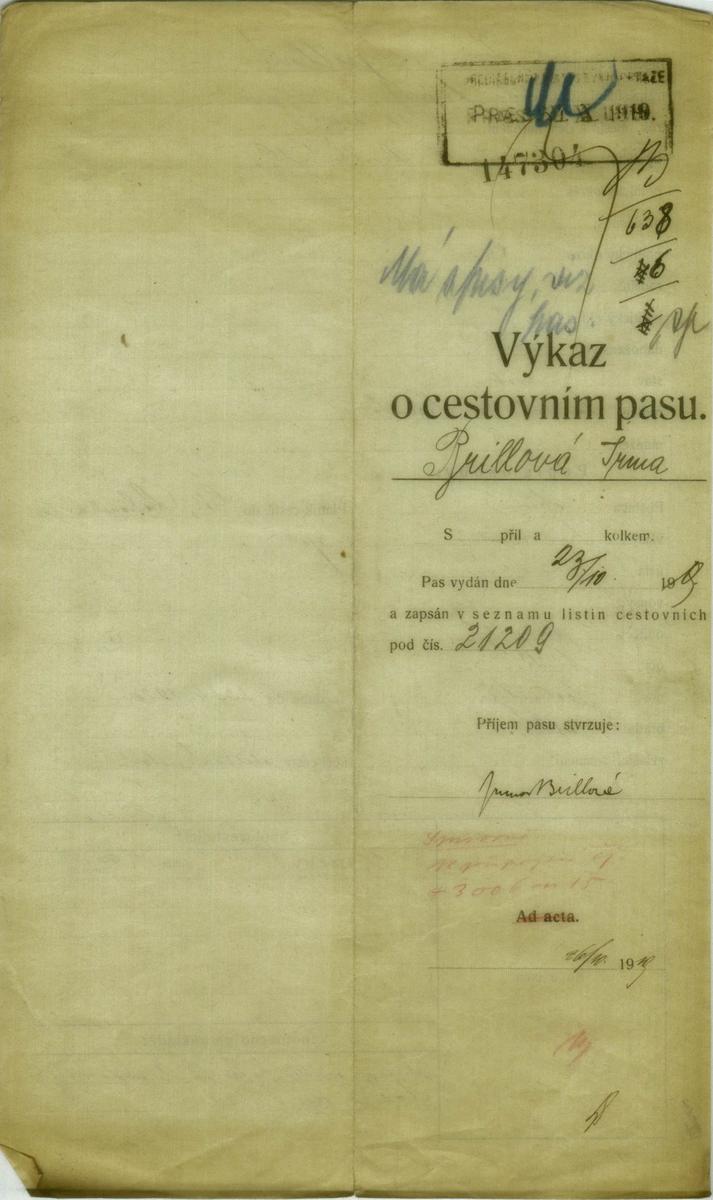 PRAES. X 1919.
147304
638
6
Má spisy, viz
pas.
Výkaz
o cestovním pasu.
Brillová Irma
S příl a kolkem.
Pas vydán dne 23/10. 19 19
a zapsán v seznamu listin cestovních
pod čís. 21209
Příjem pasu stvrzuje:
Irma Brillová
Ad acta.
19 19